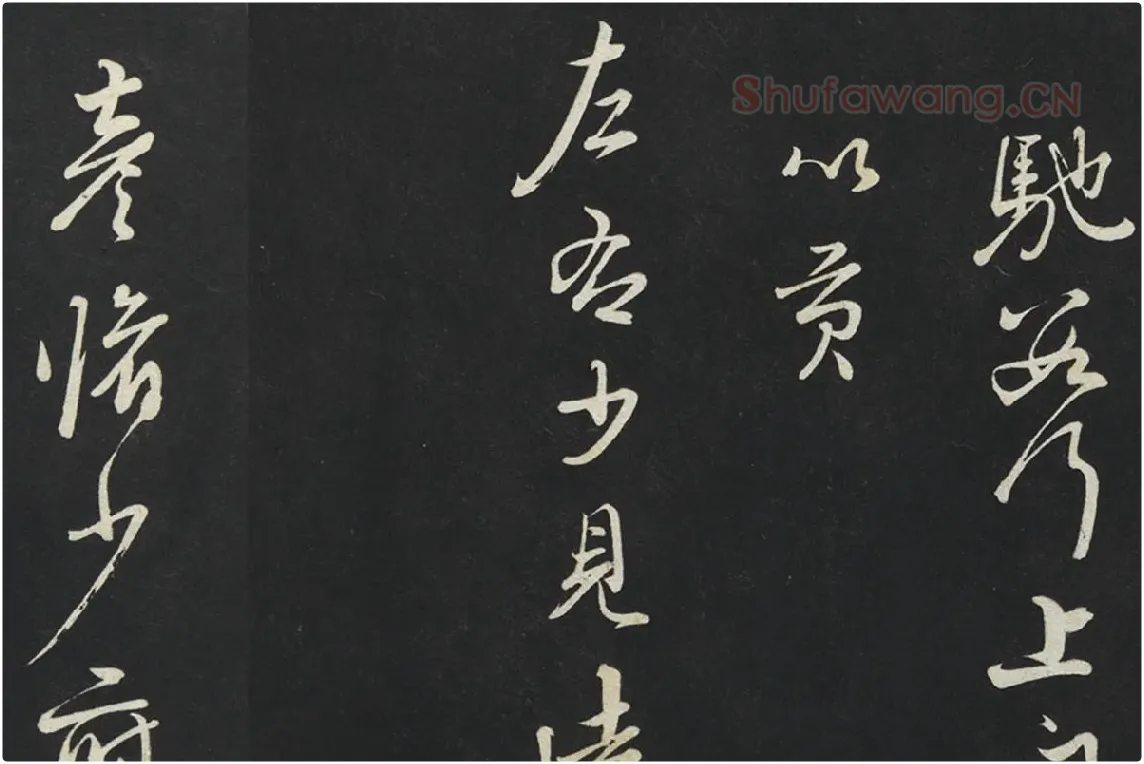 Shufawang.CN
馳數行上
以貢
左右少見
彥脩少府